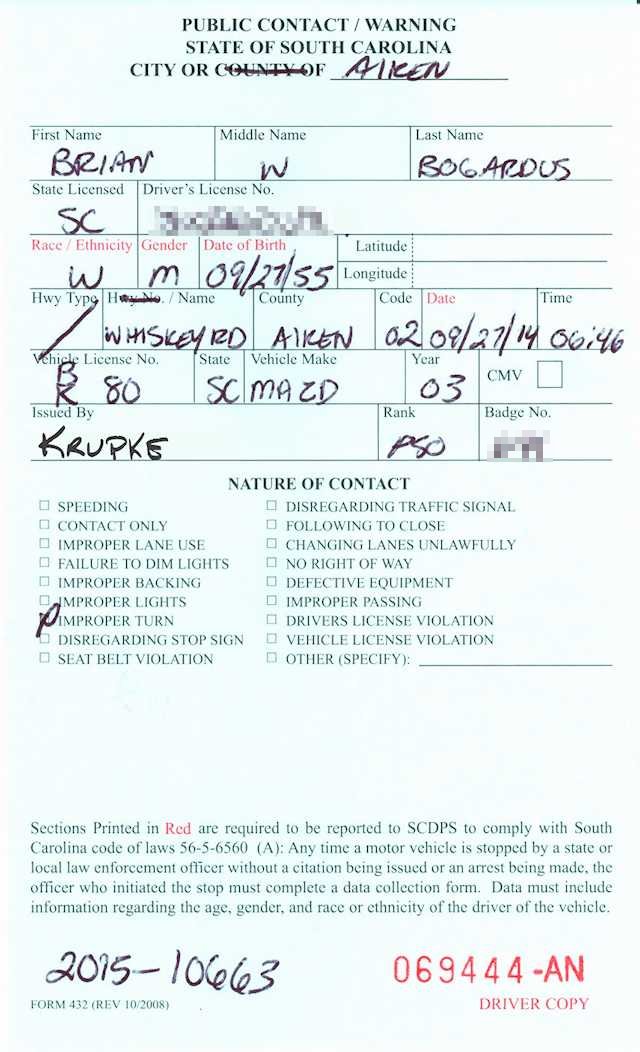 PUBLIC CONTACT / WARNING
STATE OF SOUTH CAROLINA
CITY OR COUNTY OF AIKEN
First Name Middle Name Last Name
BRIAN W BOGARDUS
State Licensed Driver's License No.
SC
Race / Ethnicity Gender Date of Birth Latitude
W M 09/27/55 Longitude
Hwy Type Hwy No. / Name County Code Date Time
/ WHISKEY RD AIKEN 02 09/27/14 06:46
Vehicle License No. State Vehicle Make Year CMV
BK 80 SC MAZD 03
Issued By Rank Badge No.
KRUPKE PSO
NATURE OF CONTACT
SPEEDING DISREGARDING TRAFFIC SIGNAL
CONTACT ONLY FOLLOWING TO CLOSE
IMPROPER LANE USE CHANGING LANES UNLAWFULLY
FAILURE TO DIM LIGHTS NO RIGHT OF WAY
IMPROPER BACKING DEFECTIVE EQUIPMENT
IMPROPER LIGHTS IMPROPER PASSING
IMPROPER TURN DRIVERS LICENSE VIOLATION
DISREGARDING STOP SIGN VEHICLE LICENSE VIOLATION
SEAT BELT VIOLATION OTHER (SPECIFY):
Sections Printed in Red are required to be reported to SCDPS to comply with South
Carolina code of laws 56-5-6560 (A): Any time a motor vehicle is stopped by a state or
local law enforcement officer without a citation being issued or an arrest being made, the
officer who initiated the stop must complete a data collection form. Data must include
information regarding the age, gender, and race or ethnicity of the driver of the vehicle.
2015-10663 069444-AN
FORM 432 (REV 10/2008) DRIVER COPY